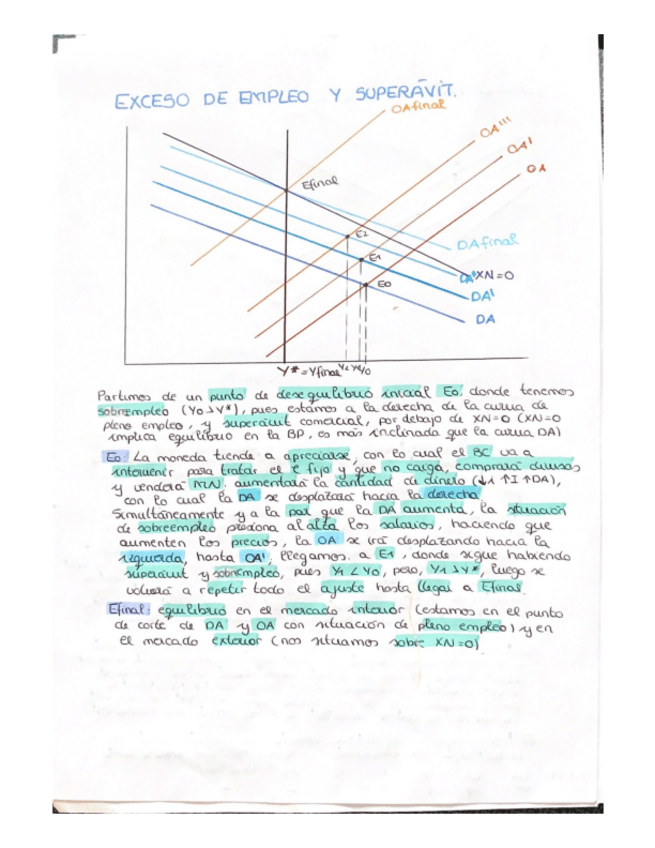 EXCESO DE EMPLEO Y SUPERÁVIT.
OAfinal
OA'''
OA'
OA
Efinal
E2
E1
E0
DAfinal
DA'' XN=0
DA'
DA
Y* = Yfinal Y2 Y1 Y0
Partimos de un punto de desequilibrio inicial E0. donde tenemos
sobrempleo (Y0>Y*), pues estamos a la derecha de la curva de
pleno empleo, y superávit comercial, por debajo de XN=0 (XN=0
implica equilibrio en la BP, es más inclinada que la curva DA)
E0: La moneda tiende a apreciarse, con lo cual el BC va a
intervenir para tratar el e fijo y que no caiga, comprará divisas
y venderá MN. aumentará la cantidad de dinero (↓i ↑I ↑DA),
con lo cual la DA se desplazará hacia la derecha
Simultáneamente y a la par que la DA aumenta, la situación
de sobreempleo presiona al alza los salarios, haciendo que
aumenten los precios, la OA se irá desplazando hacia la
izquierda, hasta OA', llegamos a E1, donde sigue habiendo
superávit y sobrempleo, pues Y1 < Y0, pero, Y1 > Y*, luego se
volverá a repetir todo el ajuste hasta llegar a Efinal.
Efinal: equilibrio en el mercado interior (estamos en el punto
de corte de DA y OA con situación de pleno empleo) y en
el mercado exterior (nos situamos sobre XN=0)